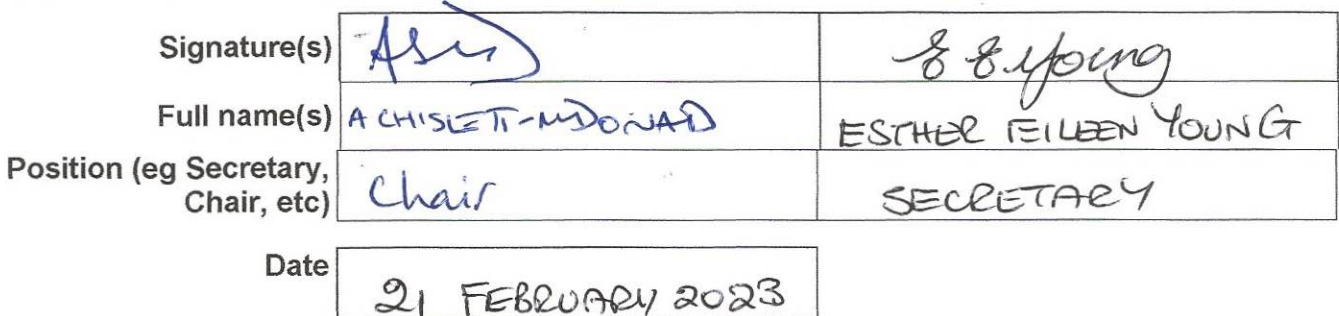 Signature(s) E E Young
Full name(s) A CHISLETT-MDONALD ESTHER EILEEN YOUNG
Position (eg Secretary,
Chair, etc) Chair SECRETARY
Date 21 FEBRUARY 2023